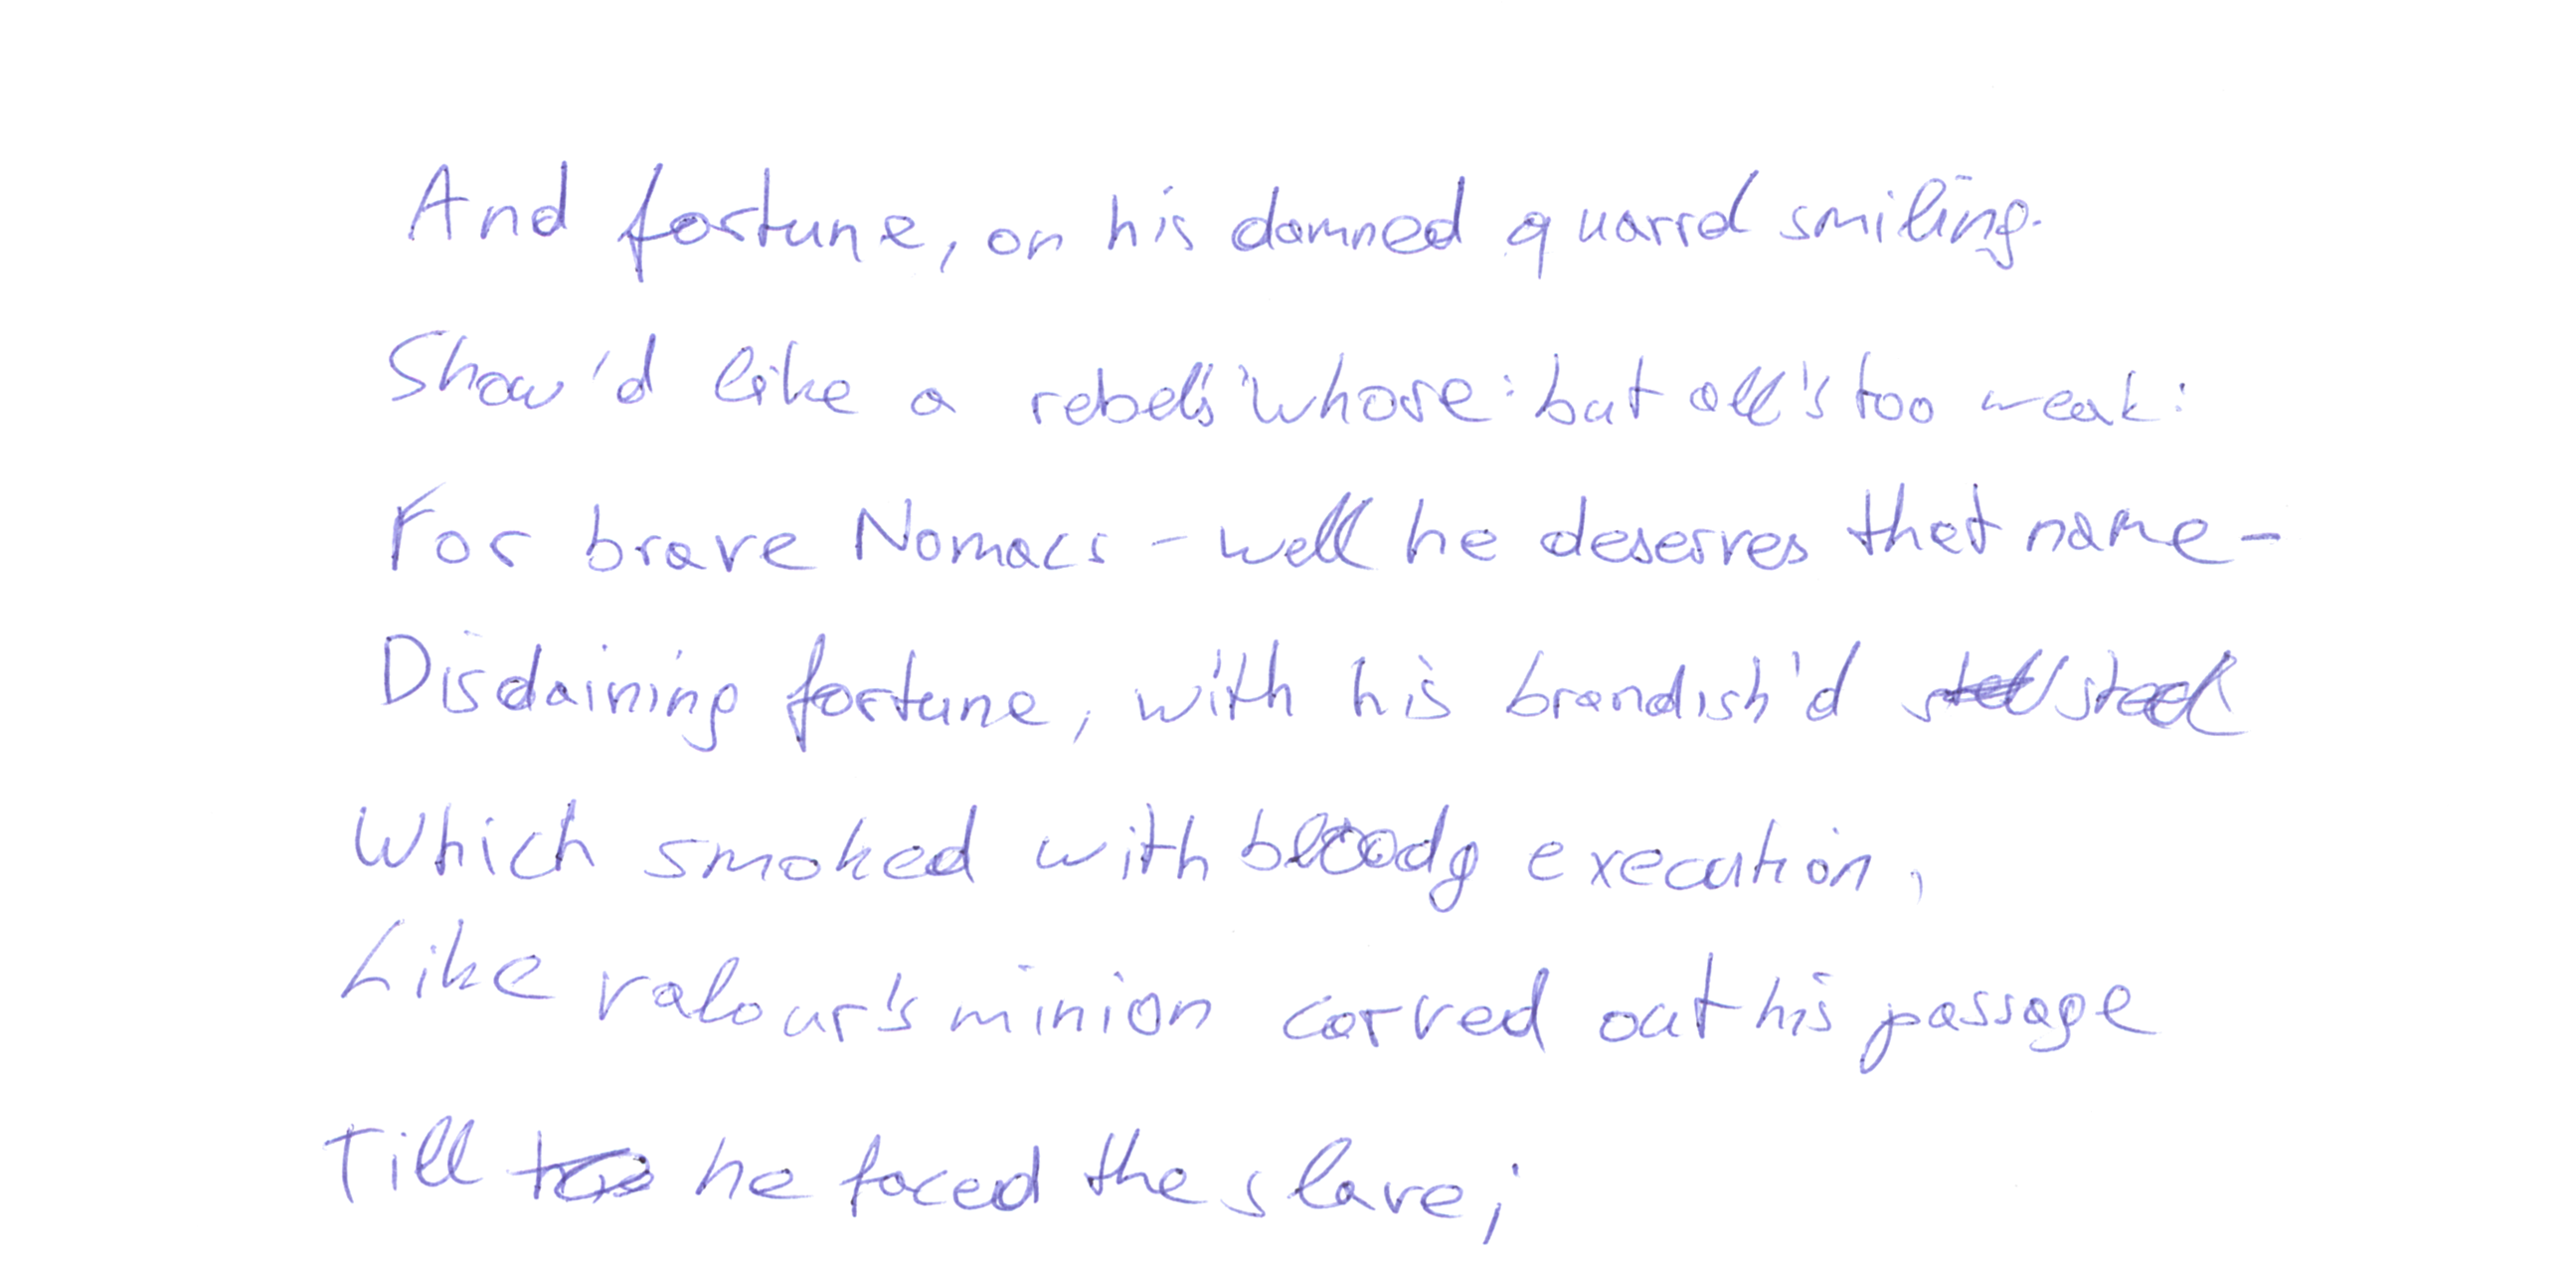 And fortune, on his damned quarrel smiling.
Show'd like a rebel's whore: but all's too weak:
For brave Nomacs - well he deserves that name -
Disdaining fortune, with his brandish'd steel
Which smoked with bloody execution,
Like valour's minion carved out his passage
Till he faced the slave;